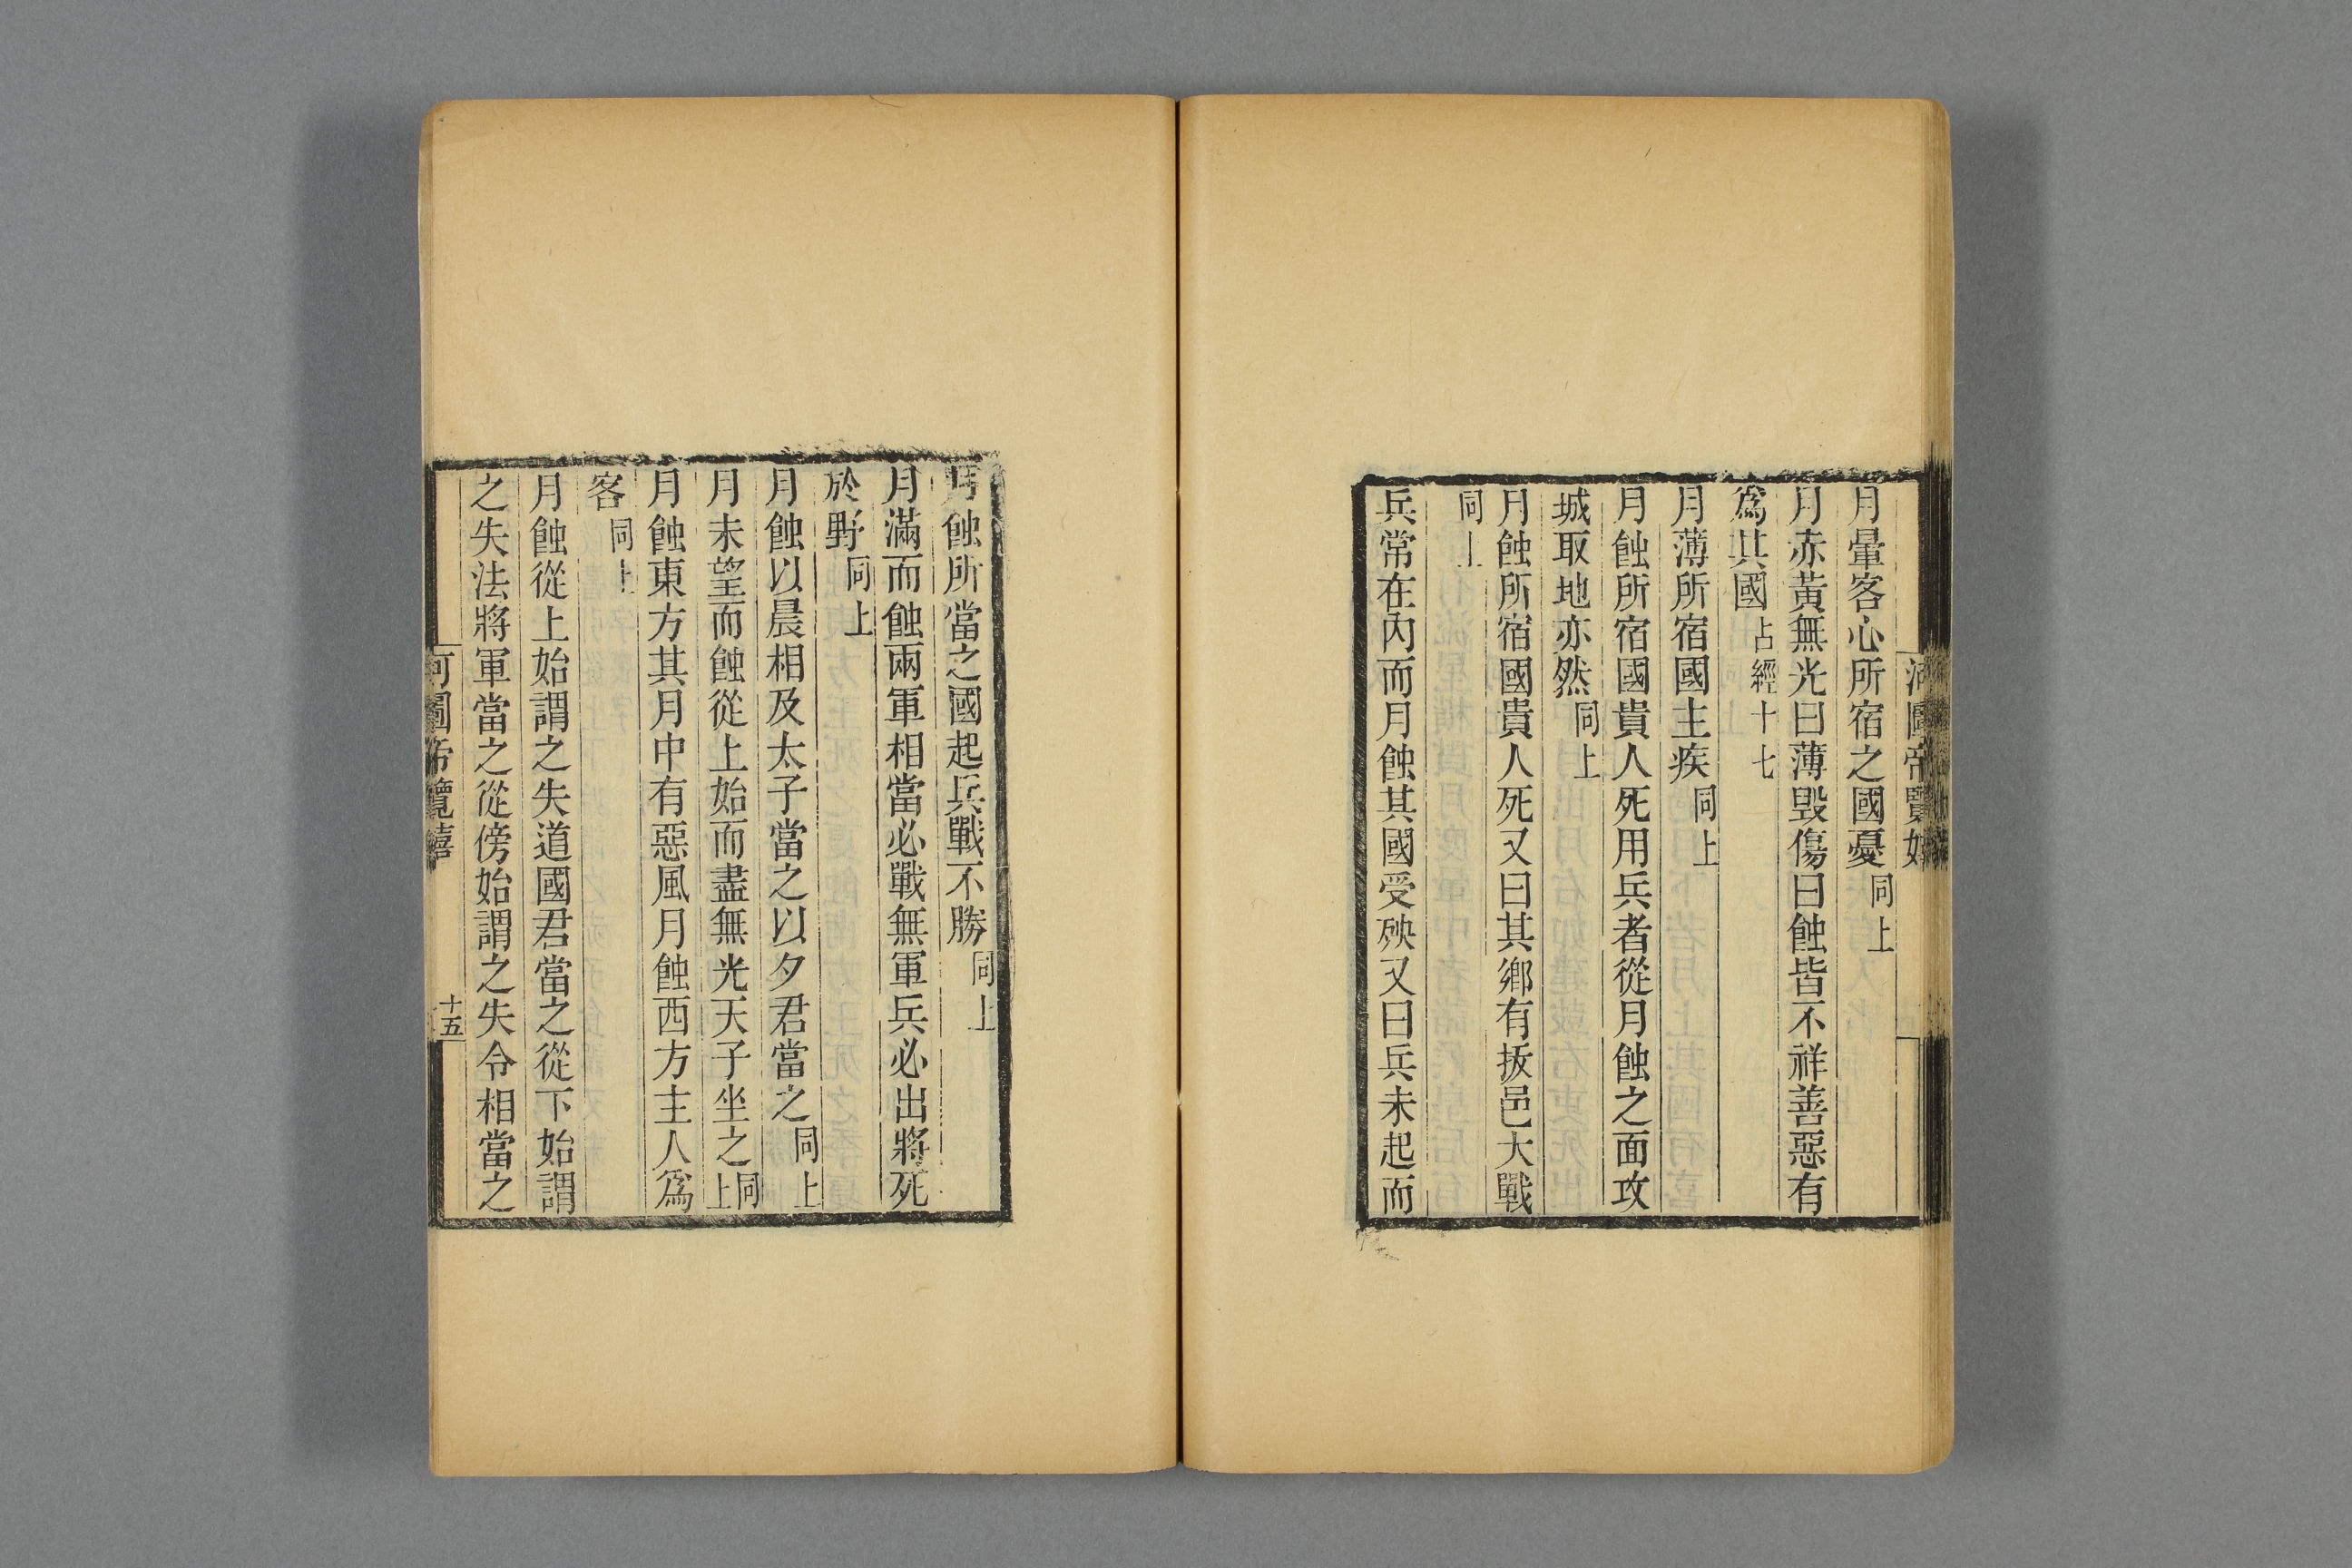 月暈客心所宿之國憂同上
月赤黃無光曰薄毀傷曰蝕皆不祥善惡有
爲其國占經十七
月薄所宿國主疾同上
月蝕所宿國貴人死用兵者從月蝕之面攻
城取地亦然同上
月蝕所宿國貴人死又曰其鄉有拔邑大戰
同上
兵常在內而月蝕其國受殃又曰兵未起而
月蝕所當之國起兵戰不勝同上
月滿而蝕兩軍相當必戰無軍兵必出將死
於野同上
月蝕以晨相及太子當之以夕君當之同上
月未望而蝕從上始而盡無光天子坐之同上
月蝕東方其月中有惡風月蝕西方主人爲
客同上
月蝕從上始謂之失道國君當之從下始謂
之失法將軍當之從傍始謂之失令相當之
河圖帝覽嬉
十五